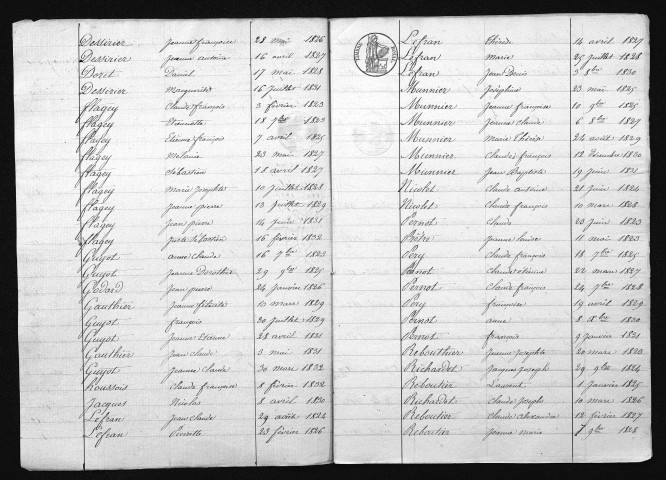 Dessirier Jeanne françoise 28 mai 1826
Dessirier Jeanne antoinia 16 avril 1827
Doret Daniel 17 mai 1828
Dessirier Marguerite 16 juillet 1831
flagey Claude françois 3 février 1823
flagey 18 7bre 1823
flagey Etienne françois 7 avril 1825
flagey Melanie 23 mai 1827
flagey Sébastien 18 avril 1827
flagey Marie josephte 10 juillet 1828
flagey jeanne pierre 13 juillet 1829
flagey jean pierre 14 juin 1831
flagey 16 février 1832
Guyot anne claude 16 7bre 1823
Guyot jeanne Dorothée 29 9bre 1825
Godard jean pierre 24 janvier 1826
Gauthier jeanne félicité 10 mars 1829
Guyot françois 30 juillet 1829
Guyot jeanne Etienne 28 avril 1831
Gauthier jean claude 3 mai 1831
Guyot jeanne claude 30 mars 1832
Roussois Claude françoise 8 février 1832
Jacques Nicolas 8 avril 1830
Lefran jean claude 29 août 1824
Lefran Pierrette 23 février 1826
Lefran Thérèse 14 avril 1827
Lefran Marie 25 juillet 1828
Lefran Jean Denis 3 8bre 1830
Munnier Joséphine 23 mai 1825
Munnier Jeanne françoise 10 9bre 1825
Munnier Jeanne claude 6 8bre 1827
Munnier Marie Thérèse 24 août 1829
Munnier Claude françois 12 Décembre 1830
Munnier Jean Baptiste 19 juin 1831
Nicolet Claude antoine 21 juin 1824
Nicolet Claude françois 10 mars 1828
Pernot Claude 23 juin 1823
jeanne claude 11 mai 1823
Pery Claude françois 18 7bre 1825
Pernot Claude étienne 22 mars 1827
Pernot Claude françois 24 7bre 1828
Pery françoise 19 avril 1829
Pernot anne 8 Xbre 1830
Pernot françois 9 janvier 1831
Rebouthier Jeanne josephte 20 mars 1823
Richardet Jacques joseph 29 9bre 1824
Reboutier Laurent 1 janvier 1825
Richardet Claude joseph 10 mars 1826
Reboutier Claude alexandre 12 février 1827
Reboutier Jeanne marie 7 9bre 1828